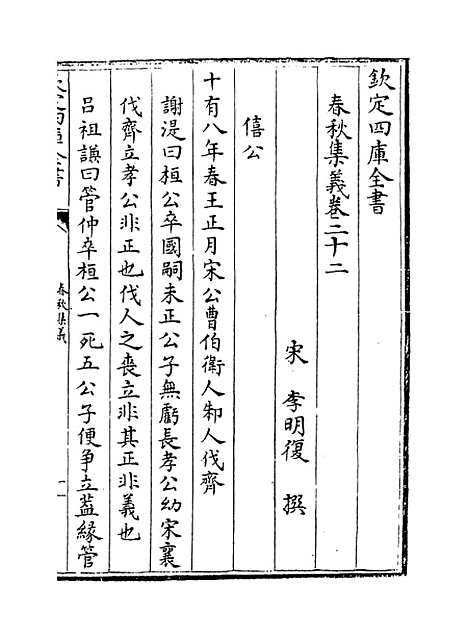 欽定四庫全書
春秋集義卷二十二
宋 李明復 撰
僖公
十有八年春王正月宋公曹伯衛人邾人伐齊
謝湜曰桓公卒國嗣未正公子無虧長孝公幼宋襄
伐齊立孝公非正也伐人之喪立非其正非義也
呂祖謙曰管仲卒桓公一死五公子便爭立蓋緣管
春秋集義
一